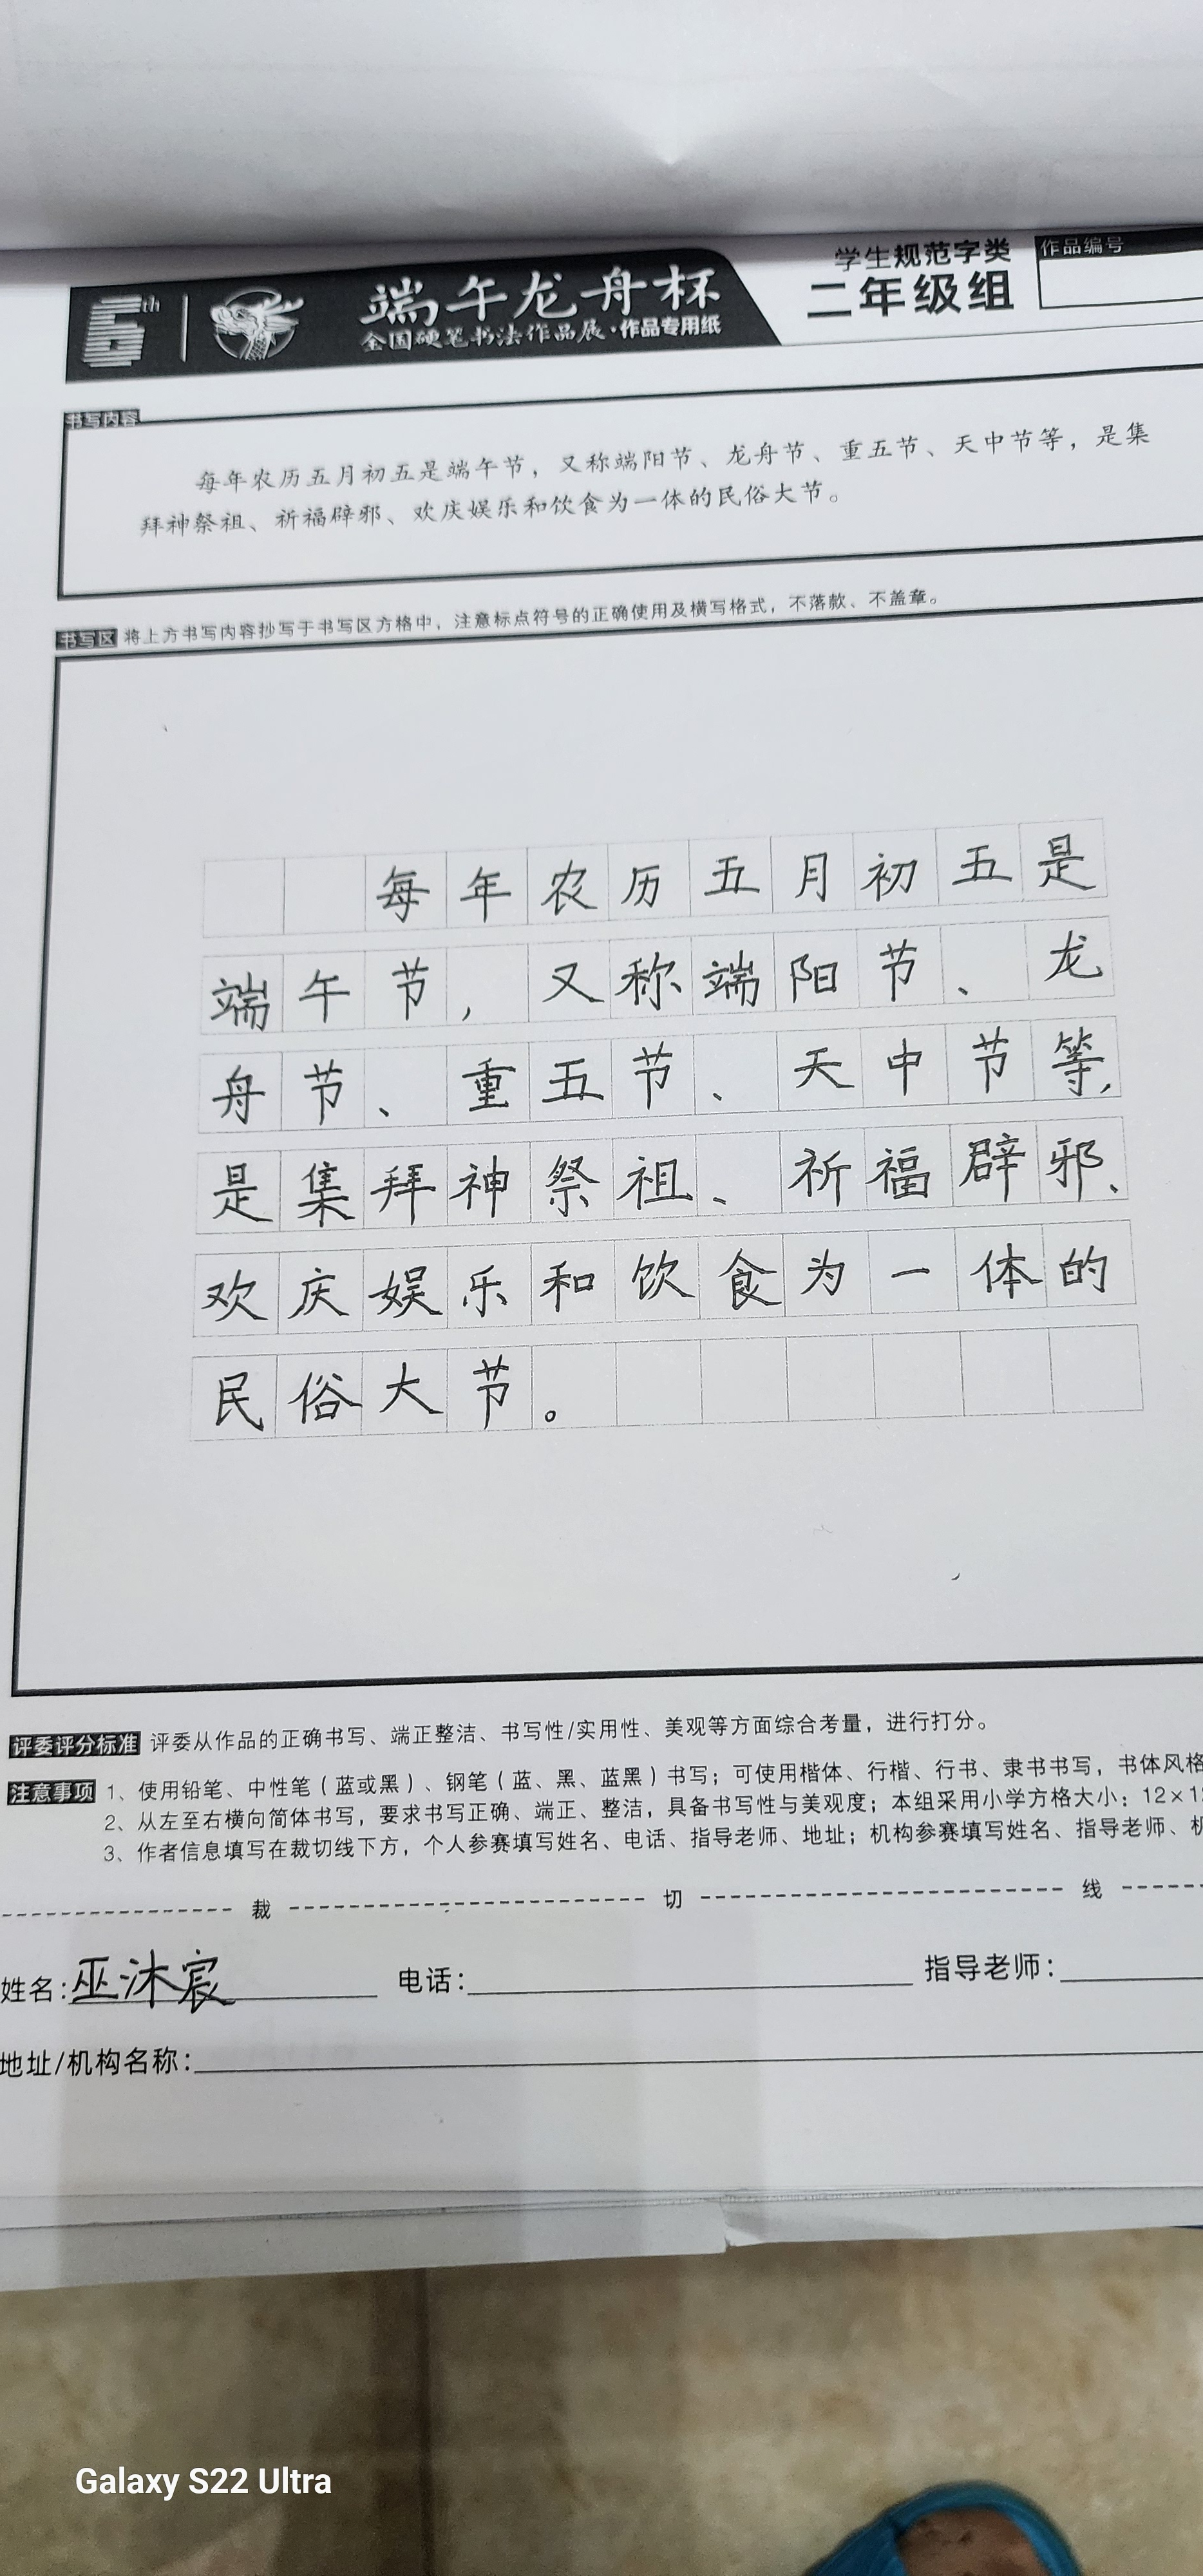 6th
端午龙舟杯
全国硬笔书法作品展·作品专用纸
学生规范字类
二年级组
作品编号
书写内容
每年农历五月初五是端午节，又称端阳节、龙舟节、重五节、天中节等，是集
拜神祭祖、祈福辟邪、欢庆娱乐和饮食为一体的民俗大节。
书写区 将上方书写内容抄写于书写区方格中，注意标点符号的正确使用及横写格式，不落款、不盖章。
每年农历五月初五是
端午节，又称端阳节、龙
舟节、重五节、天中节等，
是集拜神祭祖、祈福辟邪、
欢庆娱乐和饮食为一体的
民俗大节。
评委评分标准 评委从作品的正确书写、端正整洁、书写性/实用性、美观等方面综合考量，进行打分。
注意事项 1、使用铅笔、中性笔（蓝或黑）、钢笔（蓝、黑、蓝黑）书写；可使用楷体、行楷、行书、隶书书写，书体风格
2、从左至右横向简体书写，要求书写正确、端正、整洁，具备书写性与美观度；本组采用小学方格大小：12×1
3、作者信息填写在裁切线下方，个人参赛填写姓名、电话、指导老师、地址；机构参赛填写姓名、指导老师、机
裁 切 线
姓名：巫沐宸 电话： 指导老师：
地址/机构名称：
Galaxy S22 Ultra